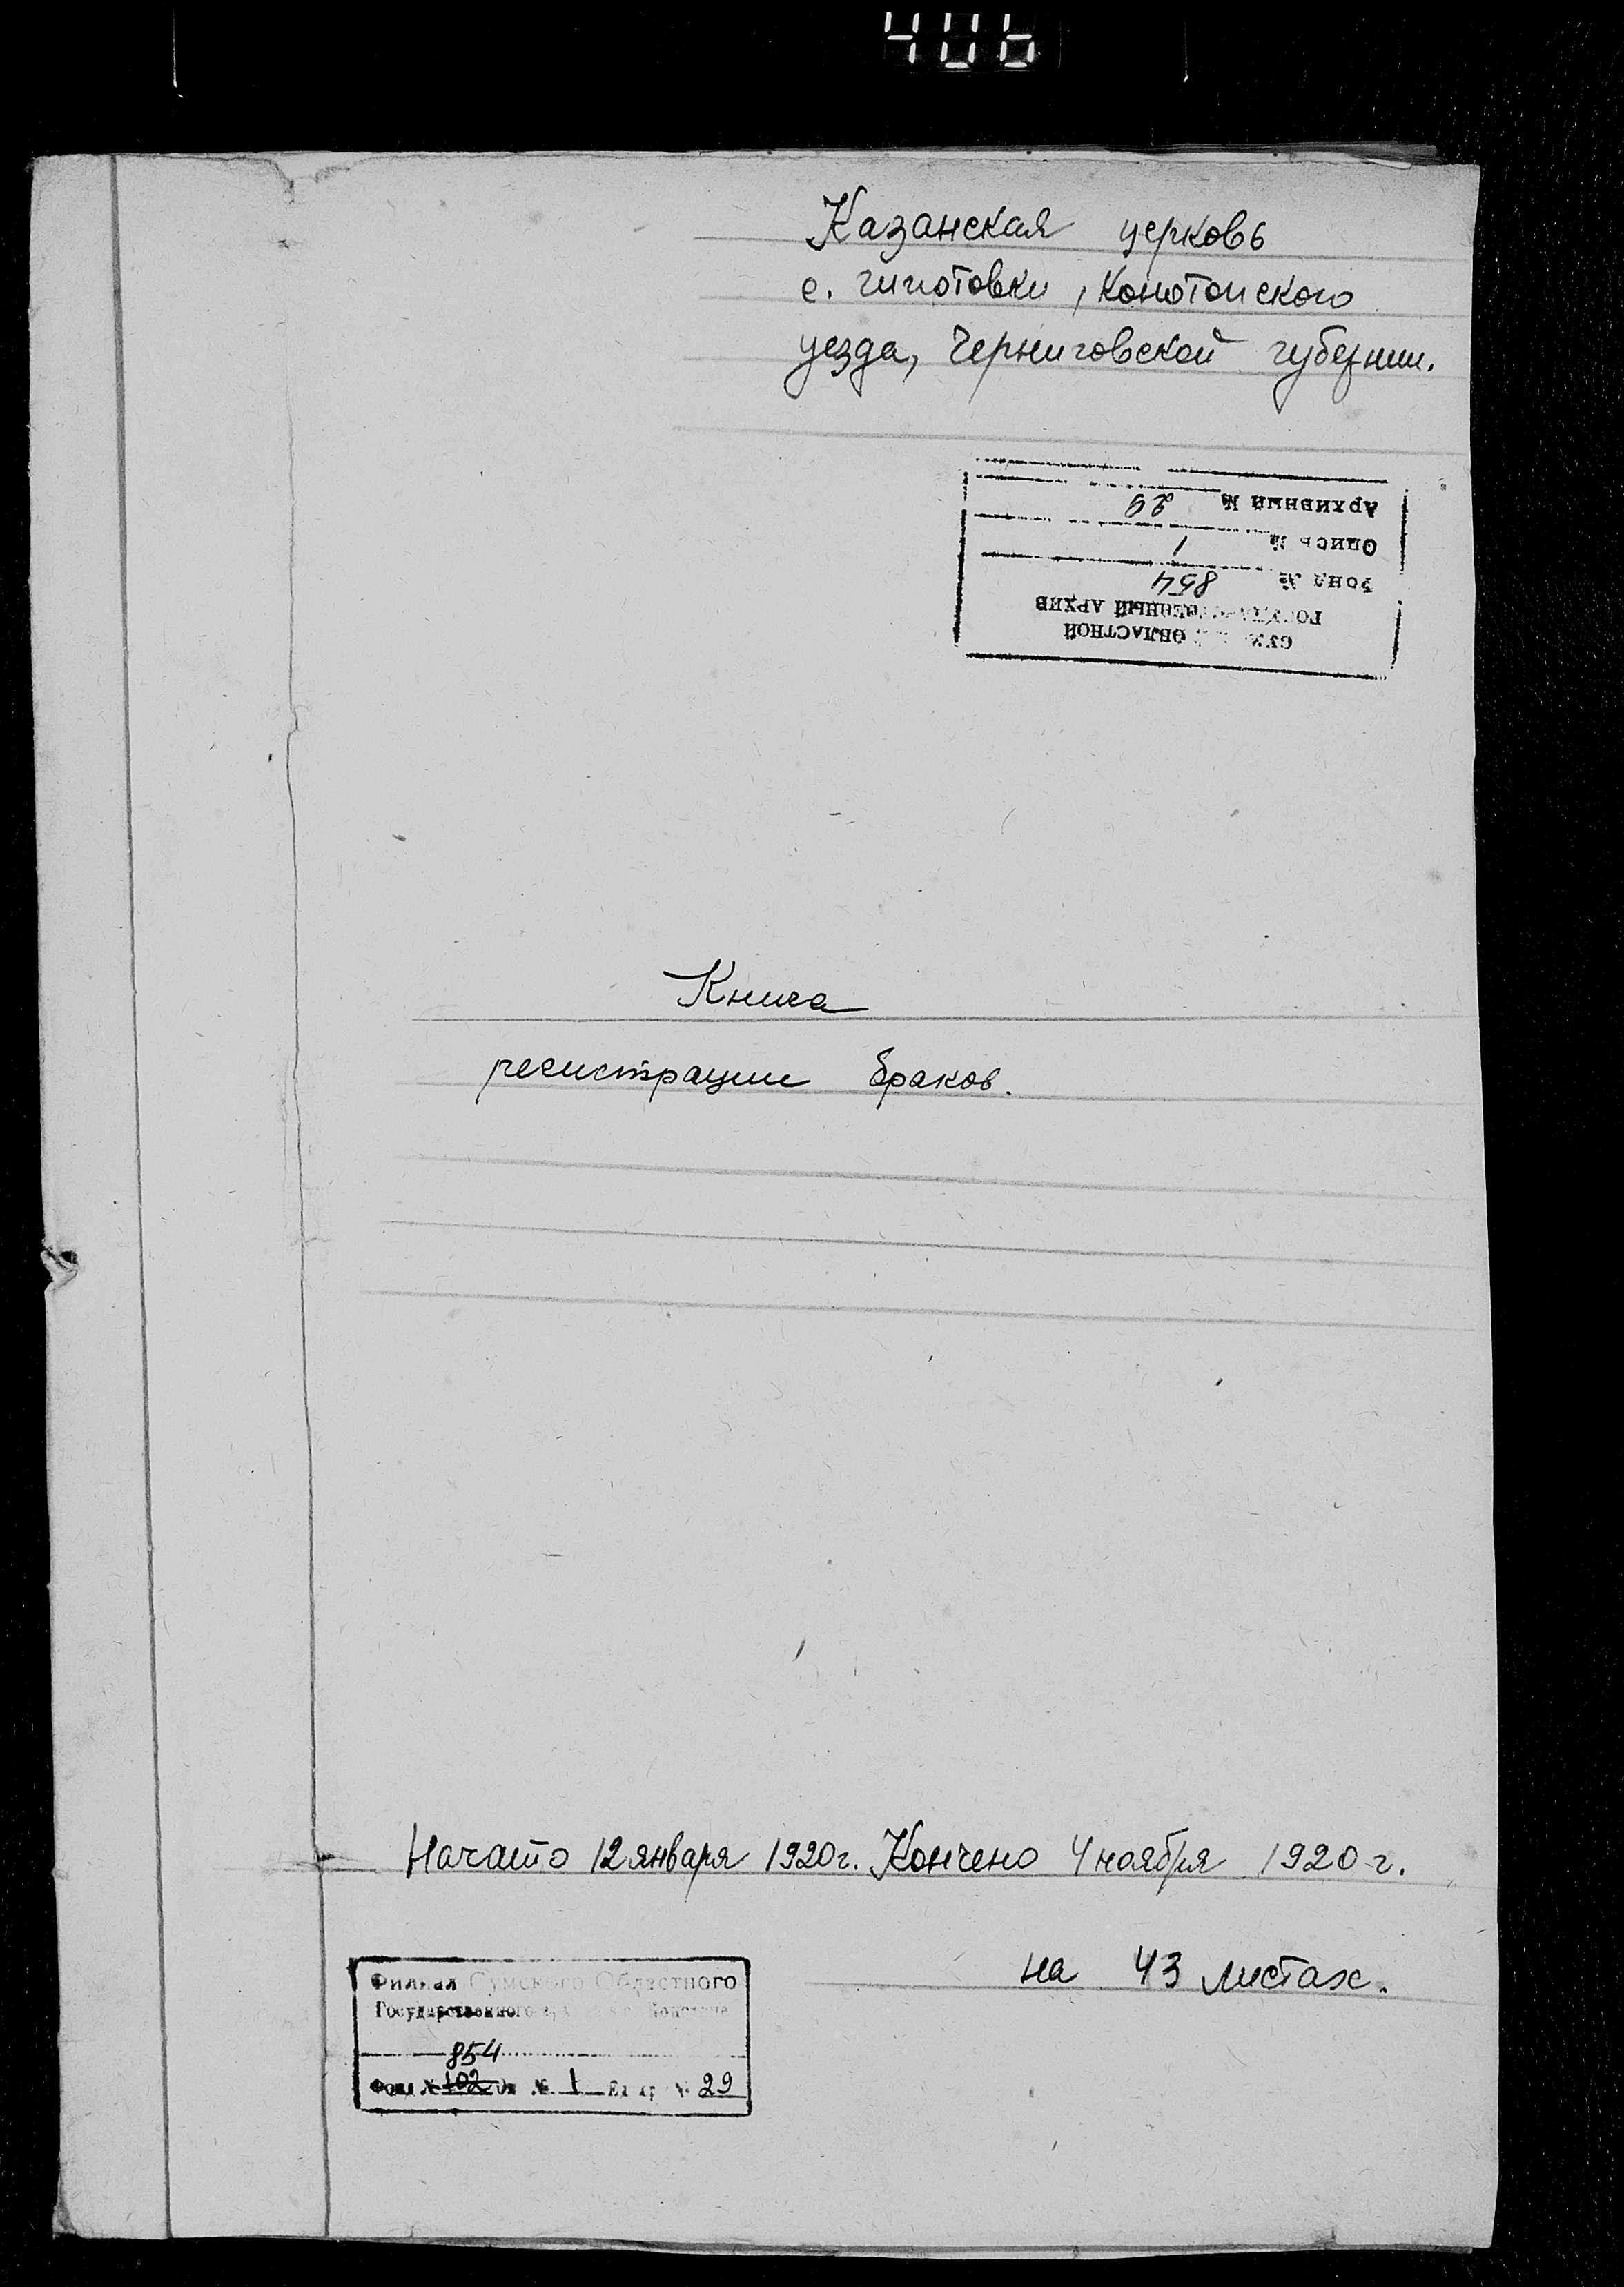 406
Казанская церковь
с. Гиготовки, Конотопского
уезда, Черниговской губернии.
Архивный № 29
Опись № 1
Фонд № 854
ГОСУДАРСТВЕННЫЙ АРХИВ
ОБЛАСТНОЙ
Книга
регистрации браков.
Начато 12 января 1920 г. Кончено 4 ноября 1920 г.
на 43 листах.
Филиал Сумского Областного
Государственного
854
Фонд № 102 Оп № 1 Ед хр № 29